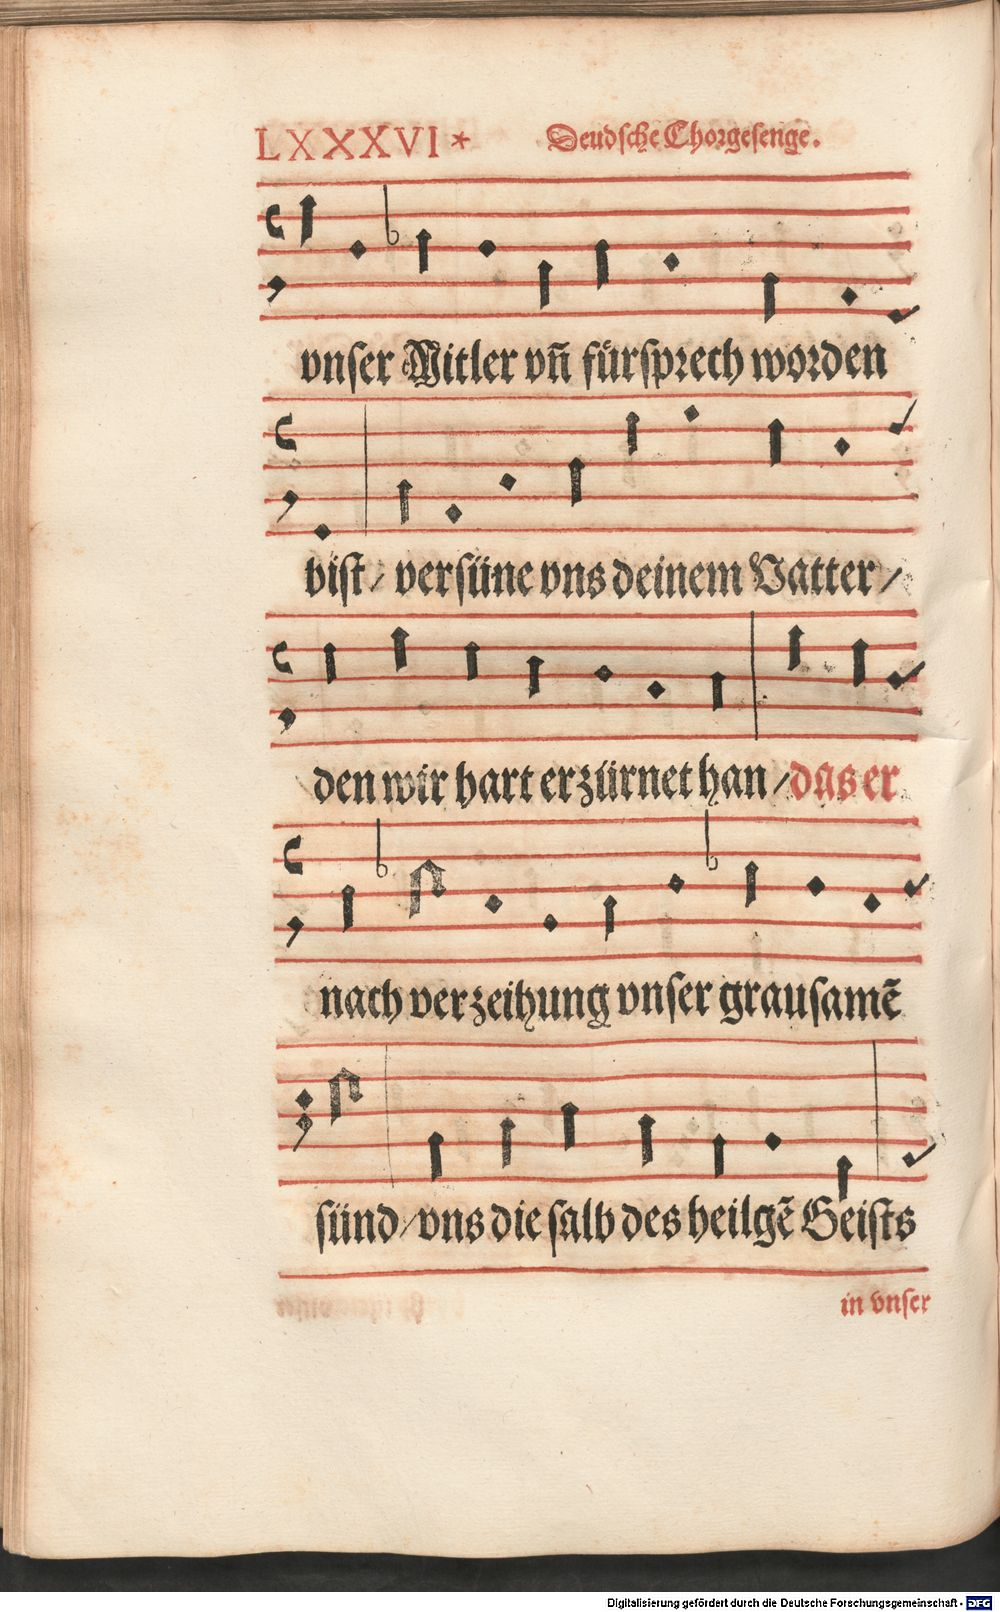 LXXXVI *
Deudsche Chorgesenge.
vnser Mitler vn̄ fürsprech worden
bist/ versüne vns deinem Vatter/
den wir hart erzürnet han/das er
nach verzeihung vnser grausamē
sünd/vns die salb des heilgē Geists
in vnser
Digitalisierung gefördert durch die Deutsche Forschungsgemeinschaft - DFG